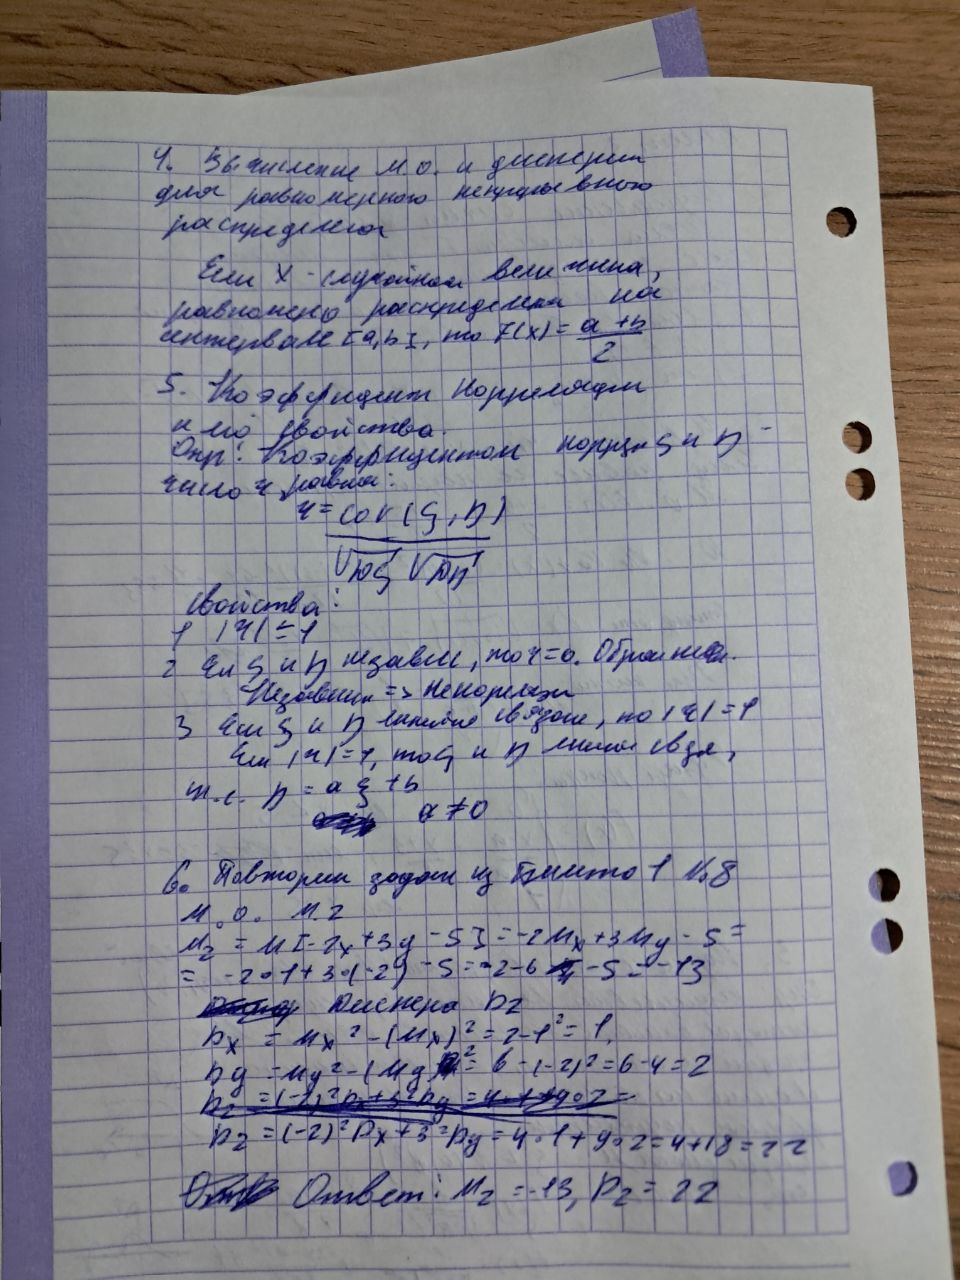 4. Вычисление М.О. и дисперсии
для равномерного непрерывного
распределения
Если X - случайная величина,
равномерно распределена на
интервале [a,b], то F(x) = a + b / 2
5. Коэффициент корреляции
и его свойства.
Опр: Коэффициентом корреляц ξ и η -
число r равна:
r = cov(ξ, η)
√Dξ √Dη
Свойства:
1 |r| ≤ 1
2 Если ξ и η независ, то r=0. Обратн
Независим => Некорреляц
3 Если ξ и η линейно связан, то |r|=1
Если |r|=1, то ξ и η линейн связ,
т.е. η = aξ + b
a ≠ 0
6. Повторим задачи из билета 1 №8
М.О. Mz
Mz = M[-2x+3y-5] = -2Mx+3My-5 =
= -2∘1+3∘(-2)-5 = -2-6-5 = -13
Дисперсия Dz
Dx = Mx² - (Mx)² = 2-1² = 1
Dy = My² - (My)² = 6-(-2)² = 6-4 = 2
Dz = (-2)²Dx+3²Dy = 4∘1+9∘2 = 4+18 = 22
Ответ: Mz = -13, Dz = 22